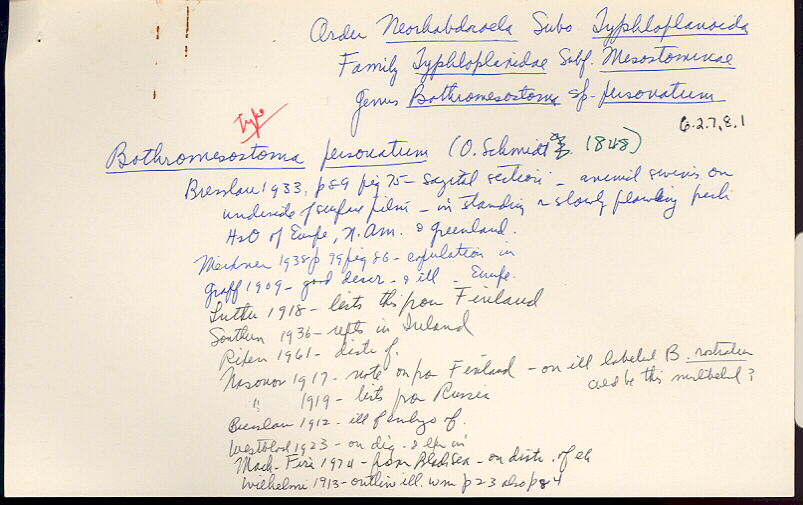 Order Neorhabdocoela Subo Typhloplanoida
Family Typhloplanidae Subf. Mesostominae
Genus Bothromesostoma sp. personatum
6.2.7,8.1
Type
Bothromesostoma personatum (O. Schmidt 1848)
Bresslau 1933, p 89 fig 75 - sagital section - animal swims on
underside of surface film - in standing or slowly flowing fresh
H2O of Europe, N. Am. & Greenland.
Meixner 1938 p 79 fig 86 - copulation in
Graff 1909 - good descr - & ill - Europe.
Luther 1918 - lists this from Finland
Southern 1936 - repts in Ireland
Rixen 1961 - distr of.
Nasonov 1917 - note on from Finland - on ill labeled B. rostratum
could be this mislabeled?
" 1919 - lists from Russia
Bresslau 1912 - ill of embryo of.
Westblad 1923 - on dig. & in
Mack-Fira 1974 - from Black Sea - on distr. of
Wilhelmi 1913 - outline ill. p 23 also p 84